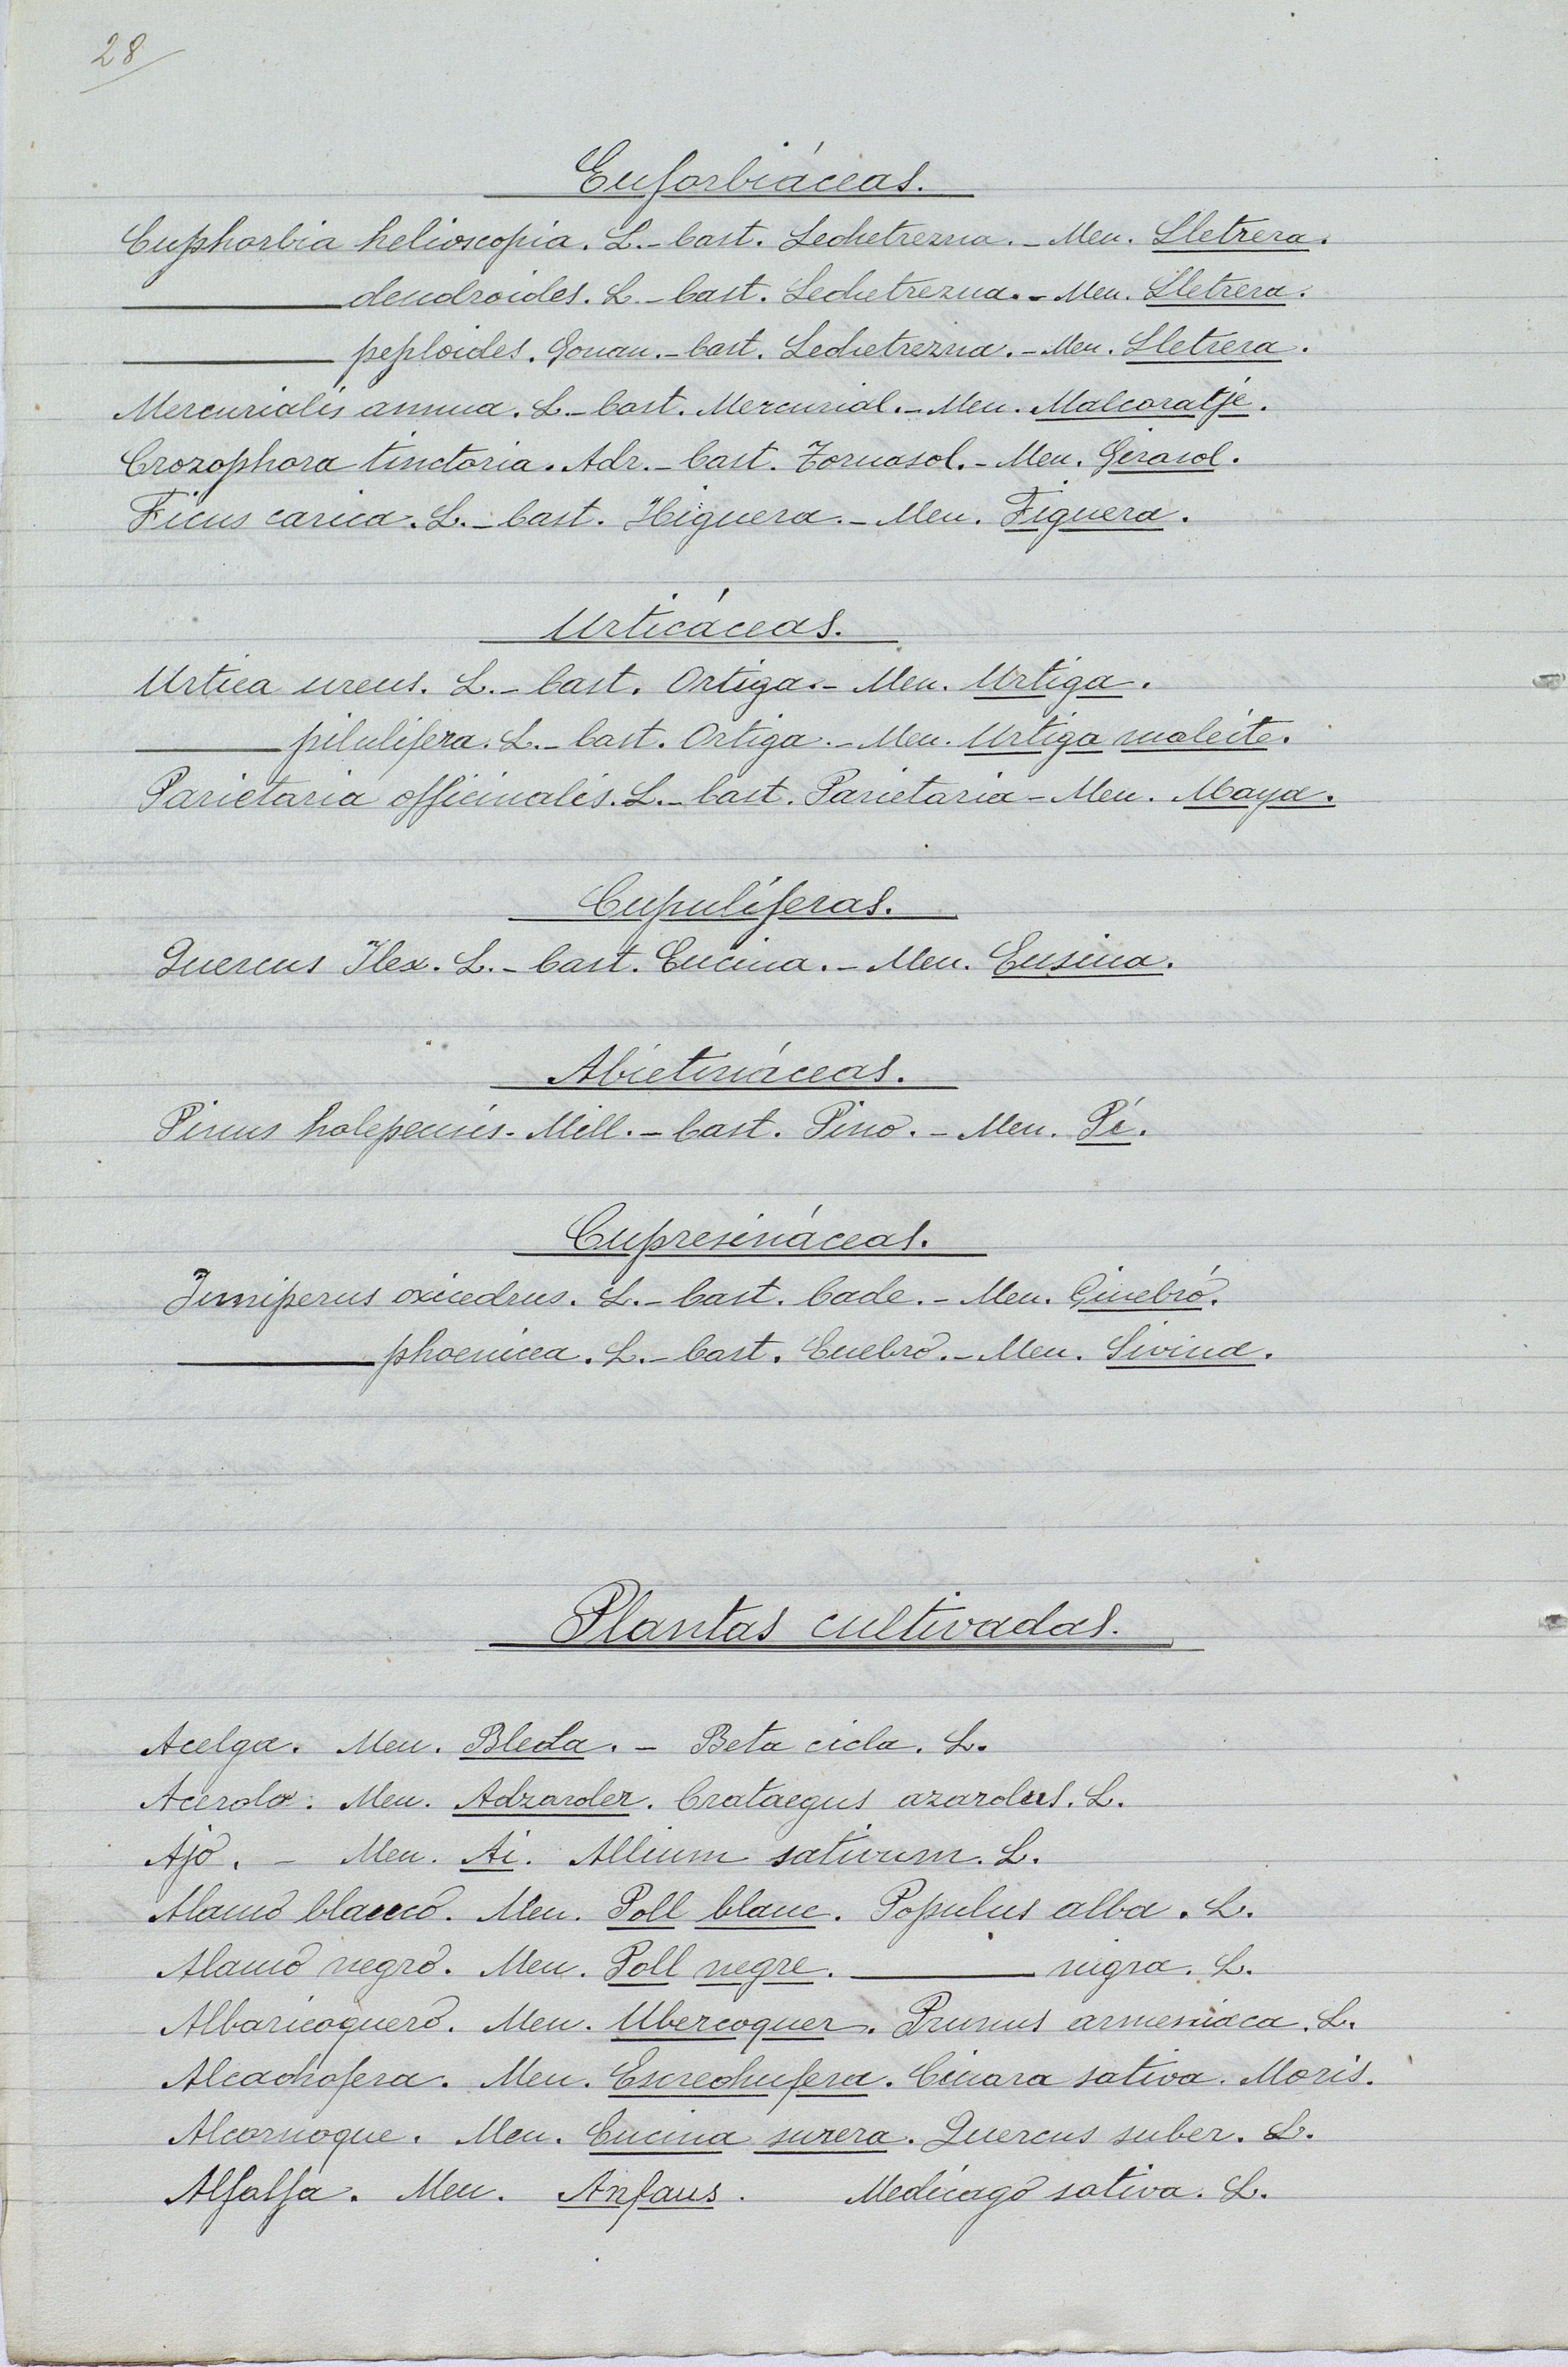 28
Euforbiáceas.
Euphorbia helioscopia. L. - Cast. Lechetrezna. - Men. Lletrera.
——— dendroides. L. - Cast. Lechetrezna. - Men. Lletrera.
——— peploides. Gouan. - Cast. Lechetrezna. - Men. Lletrera.
Mercurialis annua. L. - Cast. Mercurial. - Men. Malcoratje.
Crozophora tinctoria. Adr. - Cast. Tornasol. - Men. Girasol.
Ficus carica. L. - Cast. Higuera. - Men. Figuera.
Urticáceas.
Urtica urens. L. - Cast. Ortiga. - Men. Urtiga.
——— pilulifera. L. - Cast. Ortiga. - Men. Urtiga maleite.
Parietaria officinalis. L. - Cast. Parietaria - Men. Maya.
Cupulíferas.
Quercus Ilex. L. - Cast. Encina. - Men. Ensina.
Abietináceas.
Pinus halepensis. Mill. - Cast. Pino. - Men. Pí.
Cupresináceas.
Juniperus oxicedrus. L. - Cast. Cade. - Men. Ginebró.
——— phoenicea. L. - Cast. Enebro. - Men. Sivina.
Plantas cultivadas.
Acelga. Men. Bleda. - Beta cicla. L.
Acerola. Men. Adzaroler. Crataegus azarolus. L.
Ajo. - Men. Ai. Allium sativum. L.
Alamo blanco. Men. Poll blanc. Populus alba. L.
Alamo negro. Men. Poll negre. ——— nigra. L.
Albaricoquero. Men. Ubercoquer. Prunus armeniaca. L.
Alcachofera. Men. Escrechufera. Cinara sativa. Moris.
Alcornoque. Men. Encina surera. Quercus suber. L.
Alfalfa. Men. Anfaus. Medicago sativa. L.